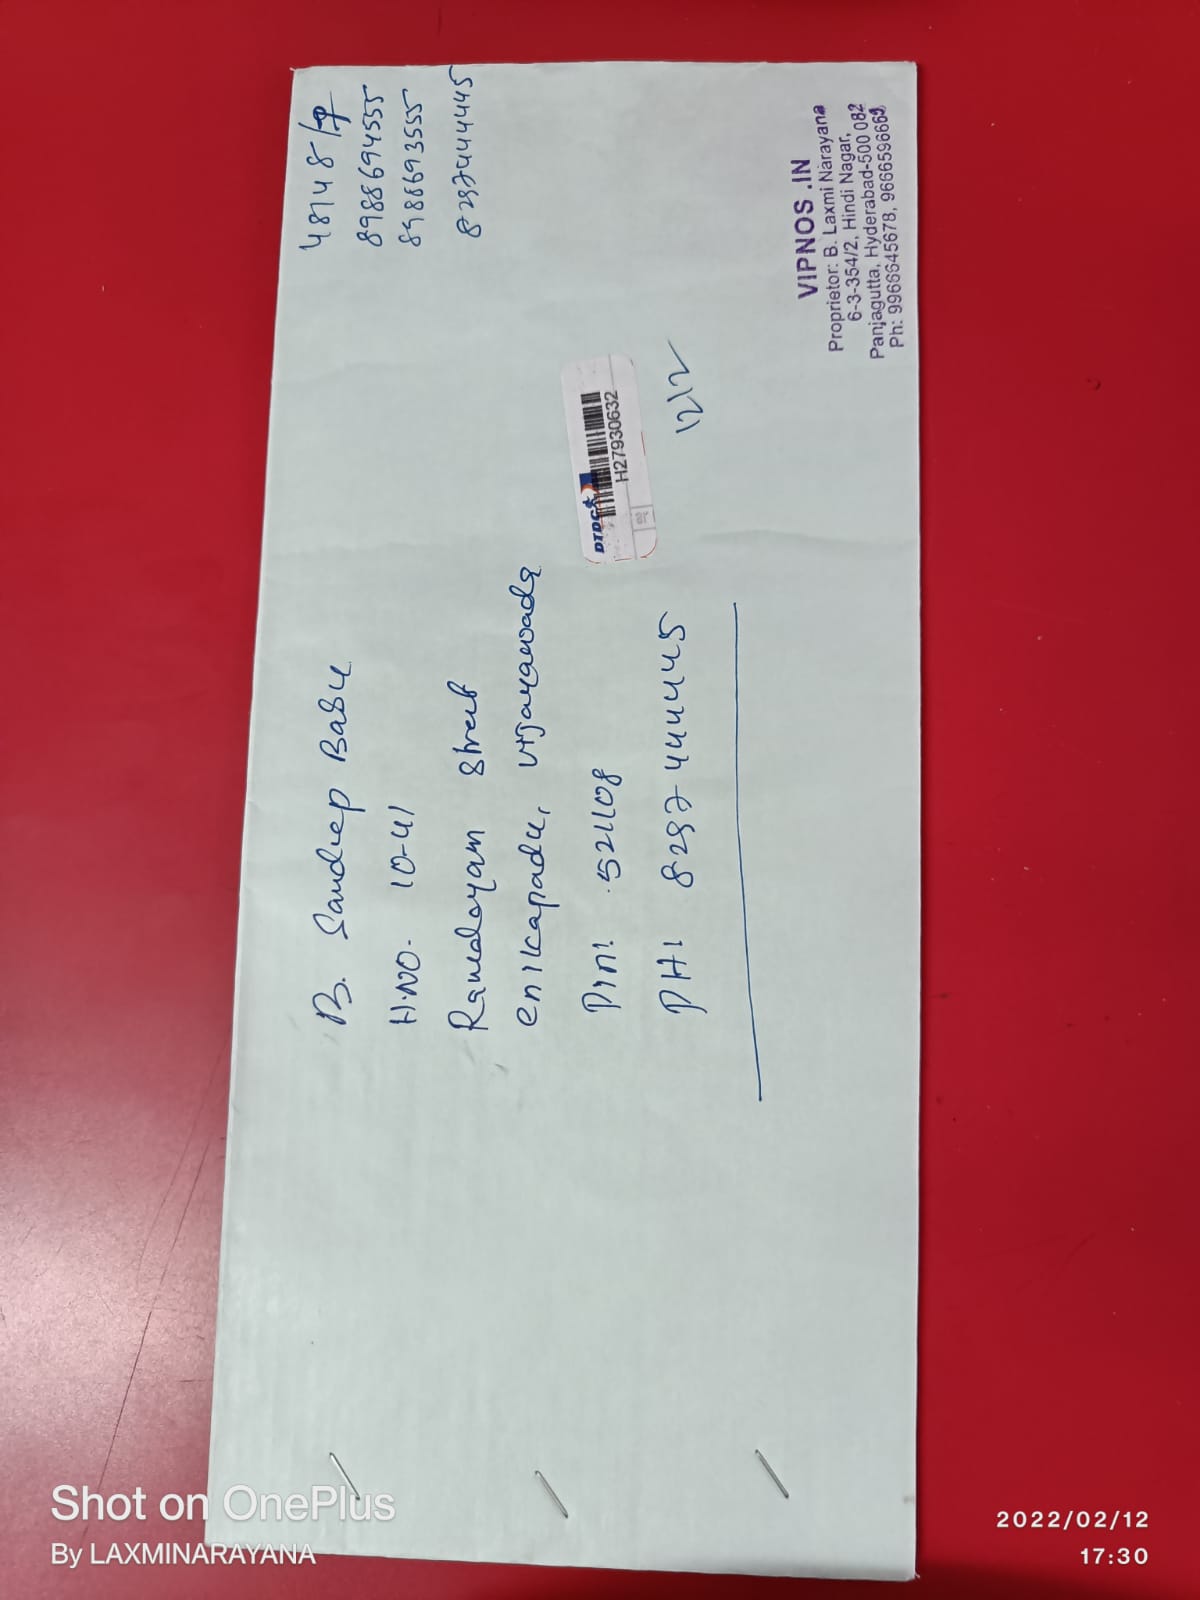 48148/
8988694555
8988693555
8297444445
B. Sandeep Babu
H.NO. 10-41
Ramalayam Street
enikapadu, vijayawada
Pin: 521108
PH: 8297444445
DTDC
H27930632
12/2
VIPNOS .IN
Proprietor: B. Laxmi Narayana
6-3-354/2, Hindi Nagar,
Panjagutta, Hyderabad-500 082
Ph: 9966645678, 9666596669
Shot on OnePlus
By LAXMINARAYANA
2022/02/12
17:30